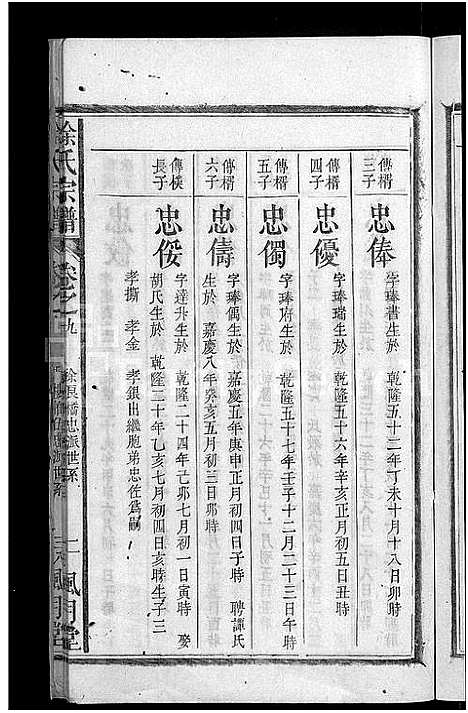 傳楈三子
忠俸
字琫書生於 乾隆五十二年丁未十月十八日卯時
傳楈四子
忠優
字琫瑞生於 乾隆五十六年辛亥正月初五日丑時
傳楈五子
忠偑
字琫府生於 乾隆五十七年壬子十二月二十三日午時
傳楈六子
忠儔
字琫偶生於 嘉慶五年庚申正月初四日子時 聘譚氏
生於 嘉慶八年癸亥五月初三日寅時
傳樸長子
忠俀
字達升生於 乾隆二十四年己卯七月初一日寅時 娶
胡氏生於 乾隆三十年乙亥七月初四日亥時生子三
孝撕 孝金 孝鎖出繼胞弟忠佐爲嗣
徐氏宗譜
卷之九
徐良橋忠派世系
風月堂